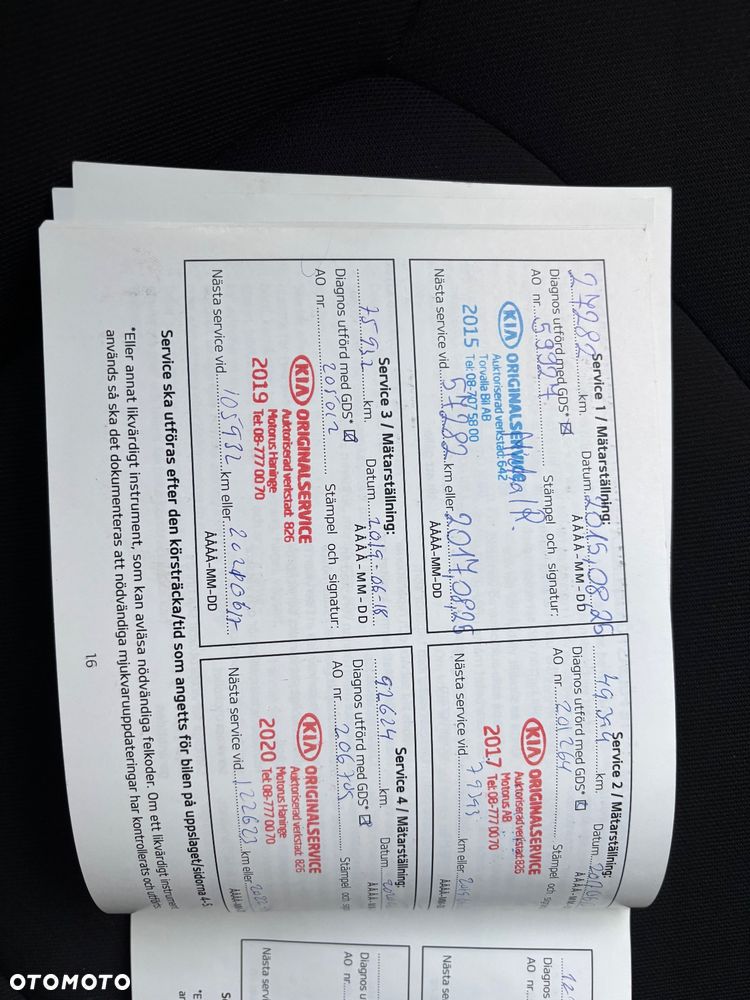 Service 1 / Mätarställning:
27282 km. Datum 2015,08,26
ÅÅÅÅ-MM-DD
Diagnos utförd med GDS*
AO nr. 59927 Stämpel och signatur:
KIA ORIGINALSERVICE
Auktoriserad verkstad: 642
Torvalla Bil AB
2015 Tel: 08-707 58 00
Nästa service vid 57282 km eller 2017,08,25
ÅÅÅÅ-MM-DD
Service 2 / Mätarställning:
km. Datum
Diagnos utförd med GDS*
AO nr 201264 Stämpel och
KIA ORIGINALSERVICE
Auktoriserad verkstad: 826
Motorus AB
2017 Tel: 08-777 00 70
Nästa service vid km eller
Service 3 / Mätarställning:
75932 km. Datum 2019-06-18
ÅÅÅÅ-MM-DD
Diagnos utförd med GDS*
AO nr. 205012 Stämpel och signatur:
KIA ORIGINALSERVICE
Auktoriserad verkstad: 826
Motorus Haninge
2019 Tel: 08-777 00 70
Nästa service vid 105932 km eller
ÅÅÅÅ-MM-DD
Service 4 / Mätarställning:
92624 km. Datum
Diagnos utförd med GDS*
AO nr 206705 Stämpel och
KIA ORIGINALSERVICE
Auktoriserad verkstad: 826
Motorus Haninge
2020 Tel: 08-777 00 70
Nästa service vid 122623 km eller
Service ska utföras efter den körsträcka/tid som angetts för bilen på uppslaget/sidorna 4-5
*Eller annat likvärdigt instrument, som kan avläsa nödvändiga felkoder. Om ett likvärdigt
används så ska det dokumenteras att nödvändiga mjukvaruuppdateringar har kontrollerats och
16
Nästa
AO nr.
OTOMOTO